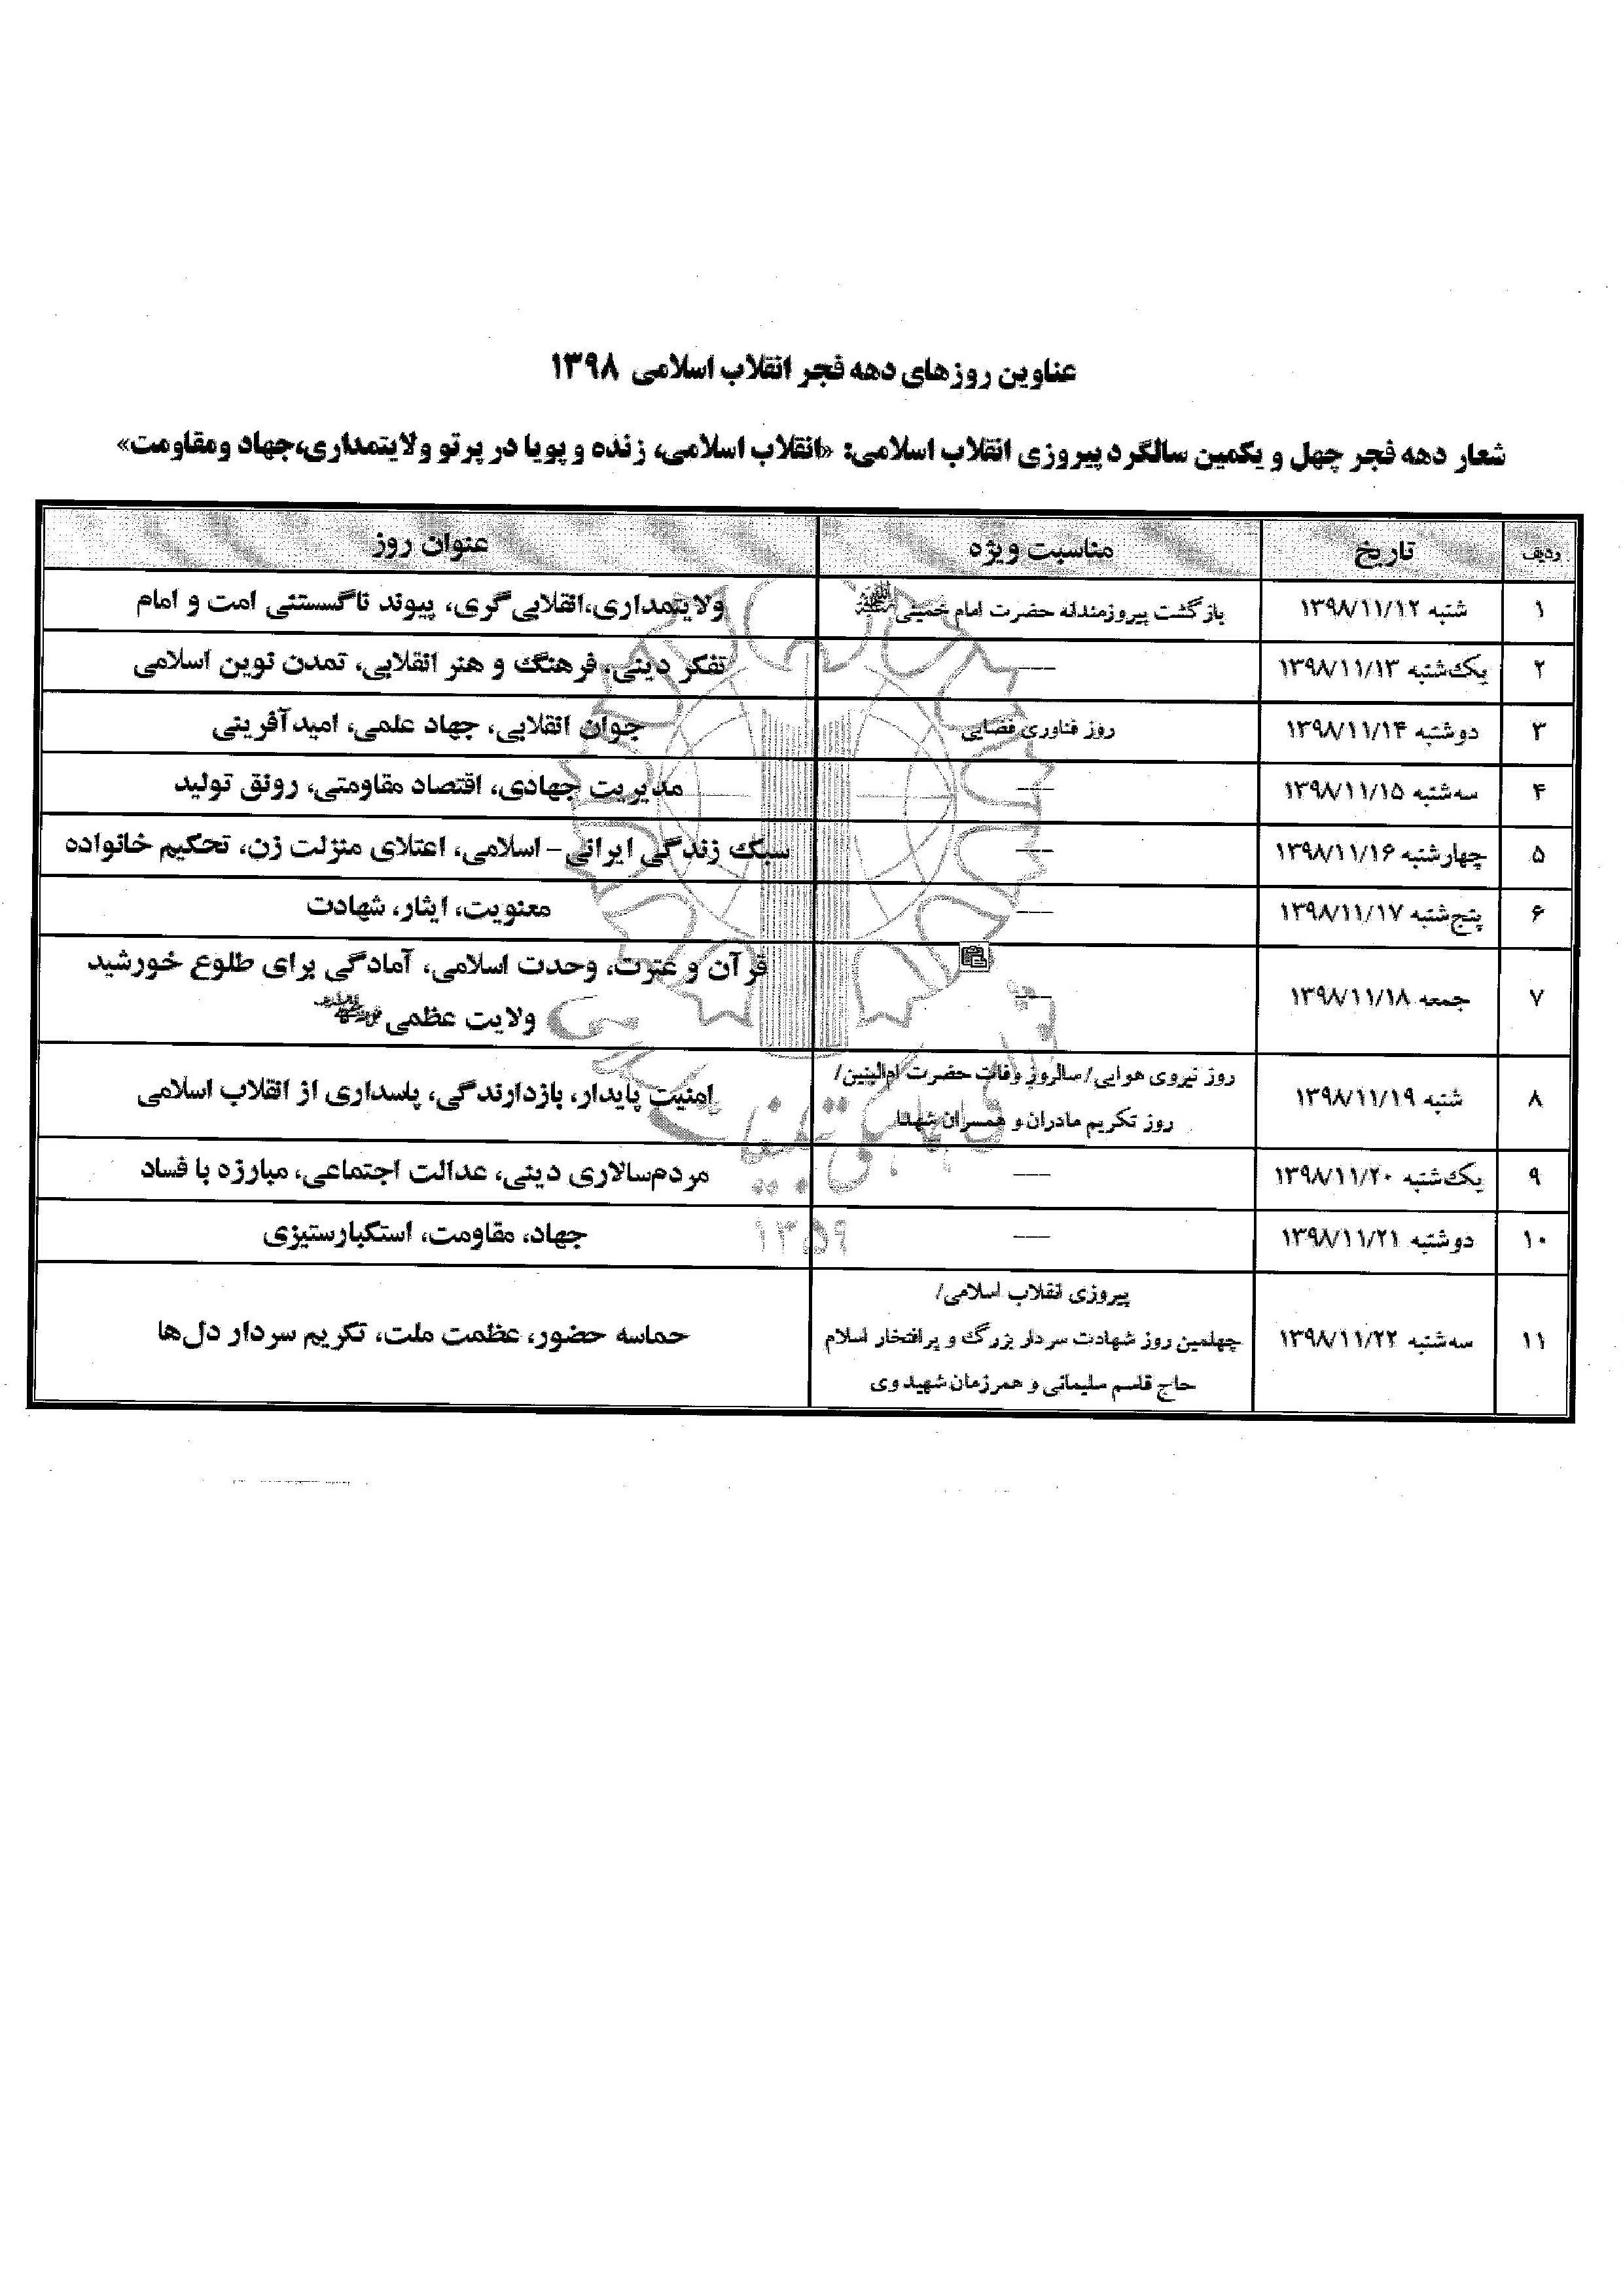 عناوین روزهای دهه فجر انقلاب اسلامی ۱۳۹۸
شعار دهه فجر چهل و یکمین سالگرد پیروزی انقلاب اسلامی: «انقلاب اسلامی، زنده و پویا در پرتو ولایتمداری،جهاد ومقاومت»
ردیف تاریخ مناسبت ویژه عنوان روز
۱ شنبه ۱۳۹۸/۱۱/۱۲ بازگشت پیروزمندانه حضرت امام خمینی ولایتمداری،انقلابی‌گری، پیوند ناگسستنی امت و امام
۲ یک‌شنبه ۱۳۹۸/۱۱/۱۳ --- تفکر دینی، فرهنگ و هنر انقلابی، تمدن نوین اسلامی
۳ دوشنبه ۱۳۹۸/۱۱/۱۴ روز فناوری فضایی جوان انقلابی، جهاد علمی، امیدآفرینی
۴ سه‌شنبه ۱۳۹۸/۱۱/۱۵ --- مدیریت جهادی، اقتصاد مقاومتی، رونق تولید
۵ چهارشنبه ۱۳۹۸/۱۱/۱۶ --- سبک زندگی ایرانی – اسلامی، اعتلای منزلت زن، تحکیم خانواده
۶ پنج‌شنبه ۱۳۹۸/۱۱/۱۷ --- معنویت، ایثار، شهادت
۷ جمعه ۱۳۹۸/۱۱/۱۸ --- قرآن و عترت، وحدت اسلامی، آمادگی برای طلوع خورشید
ولایت عظمی
۸ شنبه ۱۳۹۸/۱۱/۱۹ روز نیروی هوایی/ سالروز وفات حضرت ام‌البنین/
روز تکریم مادران و همسران شهدا
امنیت پایدار، بازدارندگی، پاسداری از انقلاب اسلامی
۹ یک‌شنبه ۱۳۹۸/۱۱/۲۰ --- مردم‌سالاری دینی، عدالت اجتماعی، مبارزه با فساد
۱۰ دوشنبه ۱۳۹۸/۱۱/۲۱ --- جهاد، مقاومت، استکبارستیزی
۱۱ سه‌شنبه ۱۳۹۸/۱۱/۲۲ پیروزی انقلاب اسلامی/
چهلمین روز شهادت سردار بزرگ و پرافتخار اسلام
حاج قاسم سلیمانی و همرزمان شهید وی
حماسه حضور، عظمت ملت، تکریم سردار دل‌ها
۱۳۵۹